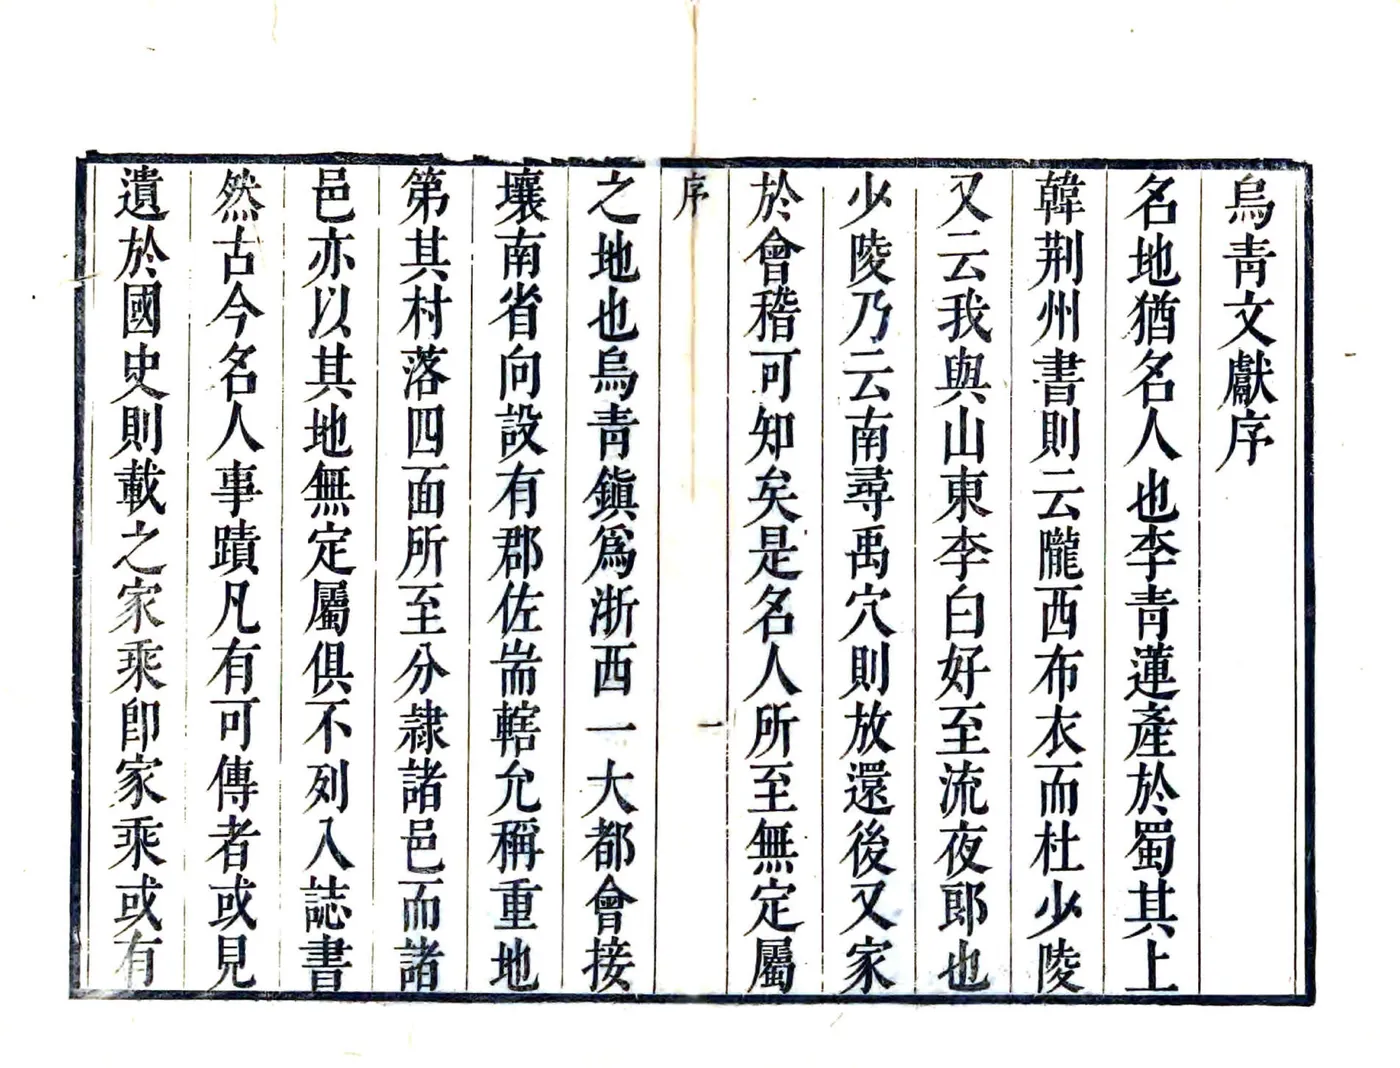 烏青文獻序
名地猶名人也李青蓮產於蜀其上
韓荆州書則云隴西布衣而杜少陵
又云我與山東李白好至流夜郎也
少陵乃云南尋禹穴則放還後又家
於會稽可知矣是名人所至無定屬
序
一
之地也烏青鎮爲浙西一大都會接
壤南省向設有郡佐耑轄允稱重地
第其村落四面所至分隸諸邑而諸
邑亦以其地無定屬俱不列入誌書
然古今名人事蹟凡有可傳者或見
遺於國史則載之家乘卽家乘或有